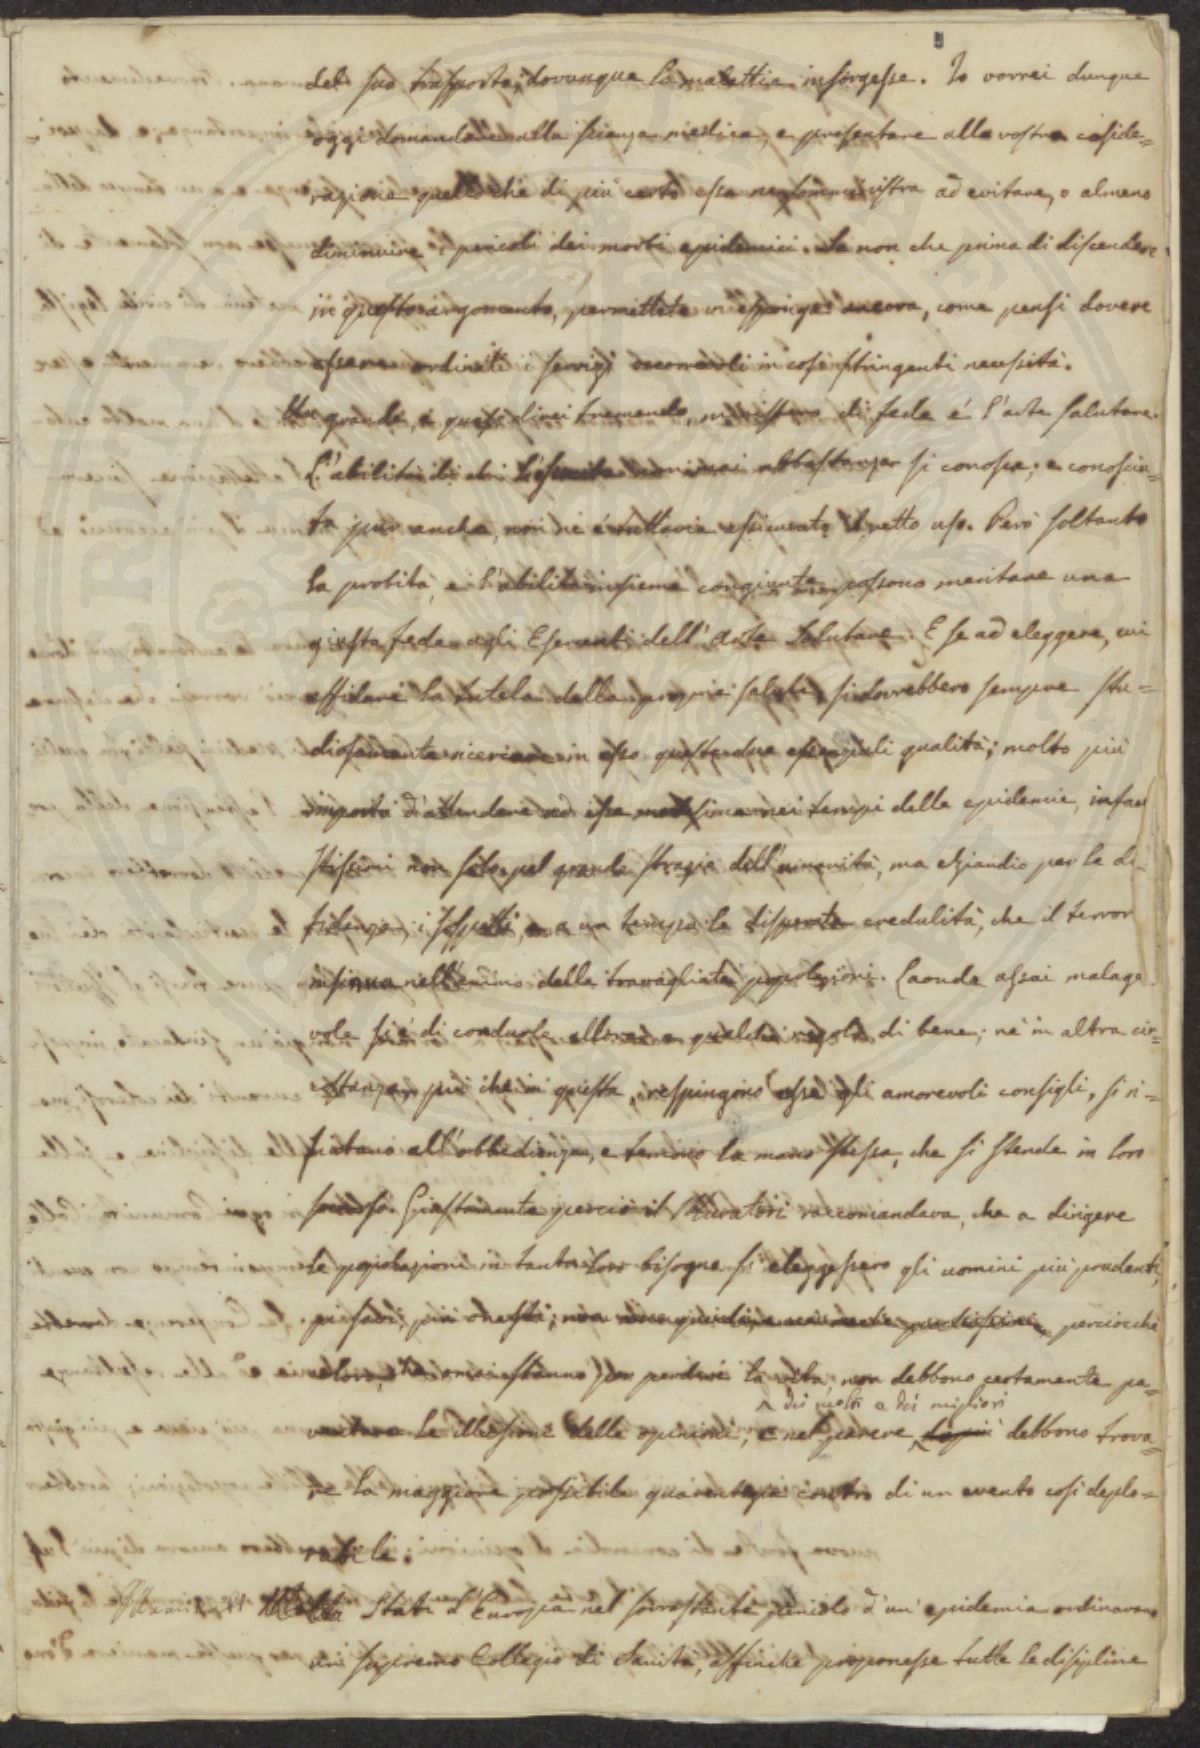 del suo trasporto, dovunque la malattia insorgesse. Io vorrei dunque
oggi domandare alla scienza medica, e presentare alla vostra conside=
razione quello che di più certo essa ne somministra ad evitare, o almeno
diminuire i pericoli dei morbi epidemici. Se non che prima di discendere
in questo argomento, permettete vi esponga ancora, come pensi dovere
essere ordinati i servigi occorrevoli in così stringenti necessità.
Un grande, e quasi direi tremendo, mistero di fede è l'arte salutare.
L'abilità di chi l'esercita non mai abbastanza si conosce; e conosciu=
ta pur anche, non ne è tuttavia assicurato il retto uso. Però soltanto
la probità, e l'abilità insieme congiunte possono meritare una
giusta fede agli Esercenti dell'Arte Salutare. E se ad eleggere, cui
affidare la tutela della propria salute, si dovrebbero sempre stu=
diosamente ricercare in esso queste due essenziali qualità; molto più
importa d'attendere ad esse nei tempi delle epidemie, infau
stissimi non solo pel grande strazio dell'umanità, ma eziandio per la di=
fidenza, i sospetti, e a un tempo la credulità, che il terror
insinua nell'animo delle travagliate popolazioni. Laonde assai malage
vole si è di condurle allora a qualche regola di bene; nè in altra cir=
costanza più che in questa, respingono esse gli amorevoli consigli, si ri=
fiutano all'obbedienza, e temono la mano stessa, che si stende in loro
soccorso. Giustamente perciò il Muratori raccomandava, che a dirigere
le popolazioni in tanto loro bisogno si eleggessero gli uomini più prudenti,
più onesti; perciocchè
coloro, che stanno per perdere la vita, non debbono certamente pa=
ventare le illusioni delle opinioni, e nel parere, ^ dei molti e dei migliori debbono trova=
re la maggiore possibile guarentigia contro di un evento così deplo=
rabile.
Molti Stati d'Europa nel sovrastante pericolo d'un'epidemia ordinarono
un supremo Collegio di Sanità, affinchè proponesse tutte le discipline